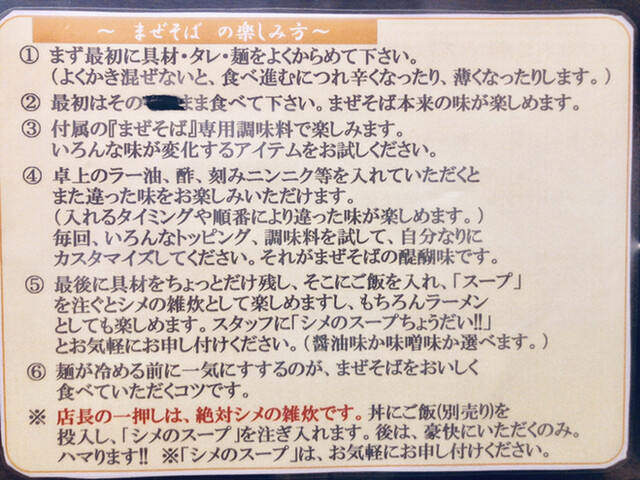 ～ まぜそば の楽しみ方～
① まず最初に具材・タレ・麺をよくからめて下さい。
（よくかき混ぜないと、食べ進むにつれ辛くなったり、薄くなったりします。）
② 最初はその まま食べて下さい。まぜそば本来の味が楽しめます。
③ 付属の『まぜそば』専用調味料で楽しみます。
いろんな味が変化するアイテムをお試しください。
④ 卓上のラー油、酢、刻みニンニク等を入れていただくと
また違った味をお楽しみいただけます。
（入れるタイミングや順番により違った味が楽しめます。）
毎回、いろんなトッピング、調味料を試して、自分なりに
カスタマイズしてください。それがまぜそばの醍醐味です。
⑤ 最後に具材をちょっとだけ残し、そこにご飯を入れ、「スープ」
を注ぐとシメの雑炊として楽しめますし、もちろんラーメン
としても楽しめます。スタッフに「シメのスープちょうだい!!」
とお気軽にお申し付けください。（醤油味か味噌味か選べます。）
⑥ 麺が冷める前に一気にすするのが、まぜそばをおいしく
食べていただくコツです。
※ 店長の一押しは、絶対シメの雑炊です。丼にご飯(別売り)を
投入し、「シメのスープ」を注ぎ入れます。後は、豪快にいただくのみ。
ハマります!! ※「シメのスープ」は、お気軽にお申し付けください。